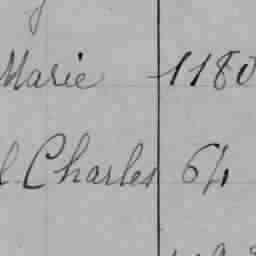 Marie 1180
l Charles 64